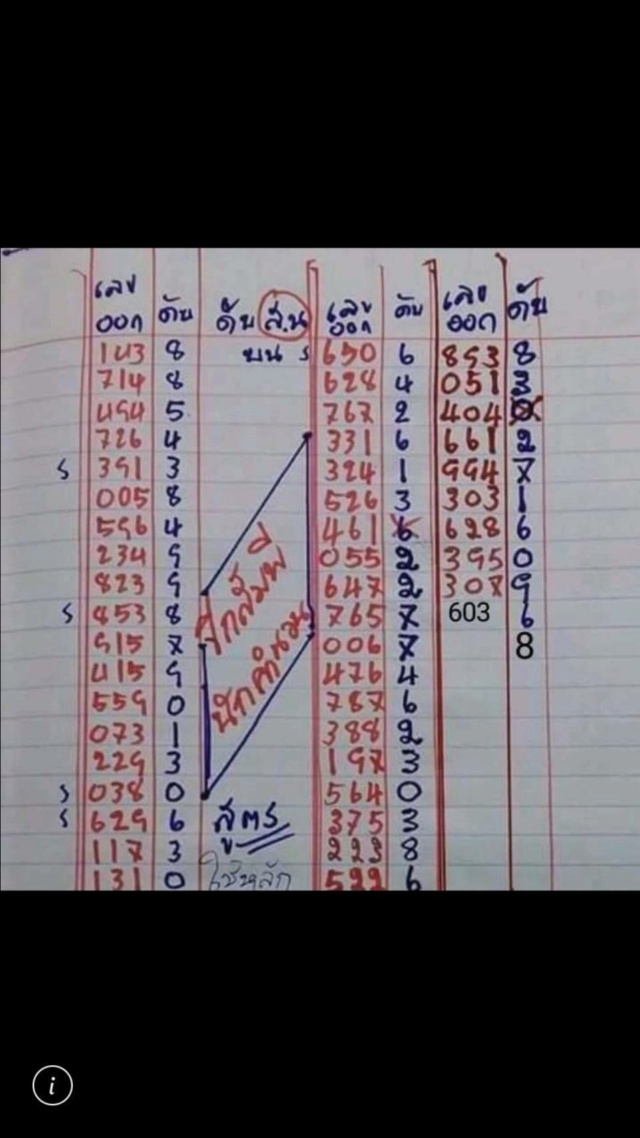 เลข ดับ ดับ ส.น เลข ดับ เลข ดับ
ออก ออก ออก
143 8 บน s 650 6 893 8
714 8 628 4 051 3
494 5 767 2 404 0
726 4 331 6 661 2
s 391 3 324 1 994 7
005 8 526 3 303 1
596 4 461 6 628 6
234 9 055 2 395 0
823 9 647 2 307 9
s 853 8 765 7 603 6
915 7 006 7 8
415 9 476 4
559 0 787 6
073 1 388 2
229 3 197 3
s 038 0 564 0
s 629 6 สูตร 375 3
117 3 223 8
131 0 ใช้หลัก 522 6
นักคำนวน